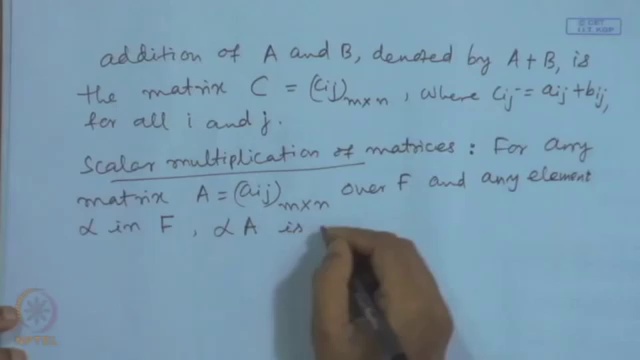 © CET
I.I.T. KGP
addition of A and B, denoted by A+B, is
the matrix C = (cij)m×n, where cij = aij + bij,
for all i and j.
Scalar multiplication of matrices: For any
matrix A = (aij)m×n over F and any element
α in F, αA is
NPTEL